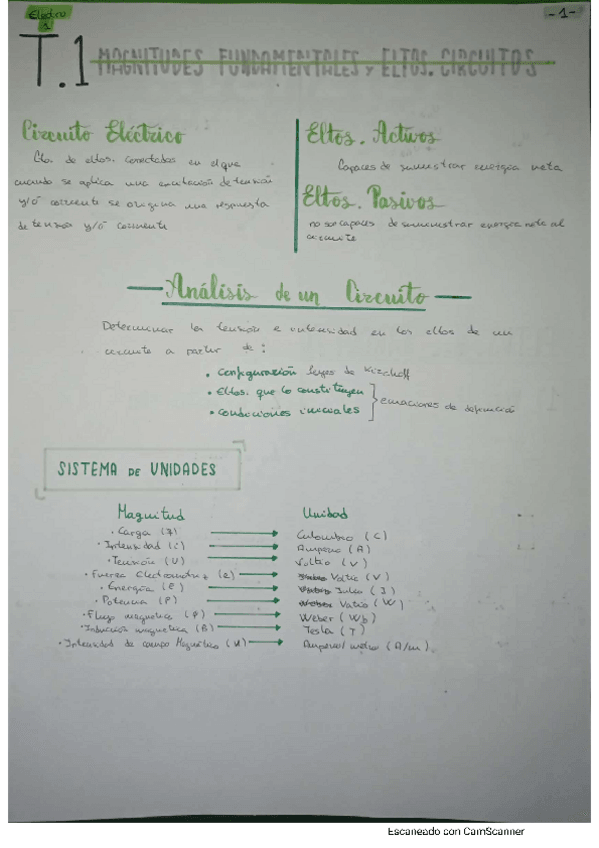 Electro
1
-1-
T.1 MAGNITUDES FUNDAMENTALES y ELTOS. CIRCUITOS
Circuito Eléctrico
Cto. de eltos. conectados en el que
cuando se aplica una excitación de tensión
y/ó corriente se origina una respuesta
de tensión y/ó corriente
Eltos. Activos
Capaces de suministrar energía neta
Eltos. Pasivos
no son capaces de suministrar energía neta al
circuito
Análisis de un Circuito
Determinar la tensión e intensidad en los eltos de un
circuito a partir de:
• configuración leyes de Kirchoff
• Eltos. que lo constituyen
• condiciones iniciales
ecuaciones de definición
SISTEMA DE UNIDADES
Magnitud Unidad
• Carga (q) → Culombio (C)
• Intensidad (i) → Amperio (A)
• Tensión (U) → Voltio (V)
• Fuerza Electromotriz (e) → Voltio (V)
• Energía (E) → Julio (J)
• Potencia (P) → Vatio (W)
• Flujo magnético (φ) → Weber (Wb)
• Inducción magnética (B) → Tesla (T)
• Intensidad de campo Magnético (H) → Amperio/metro (A/m)
Escaneado con CamScanner